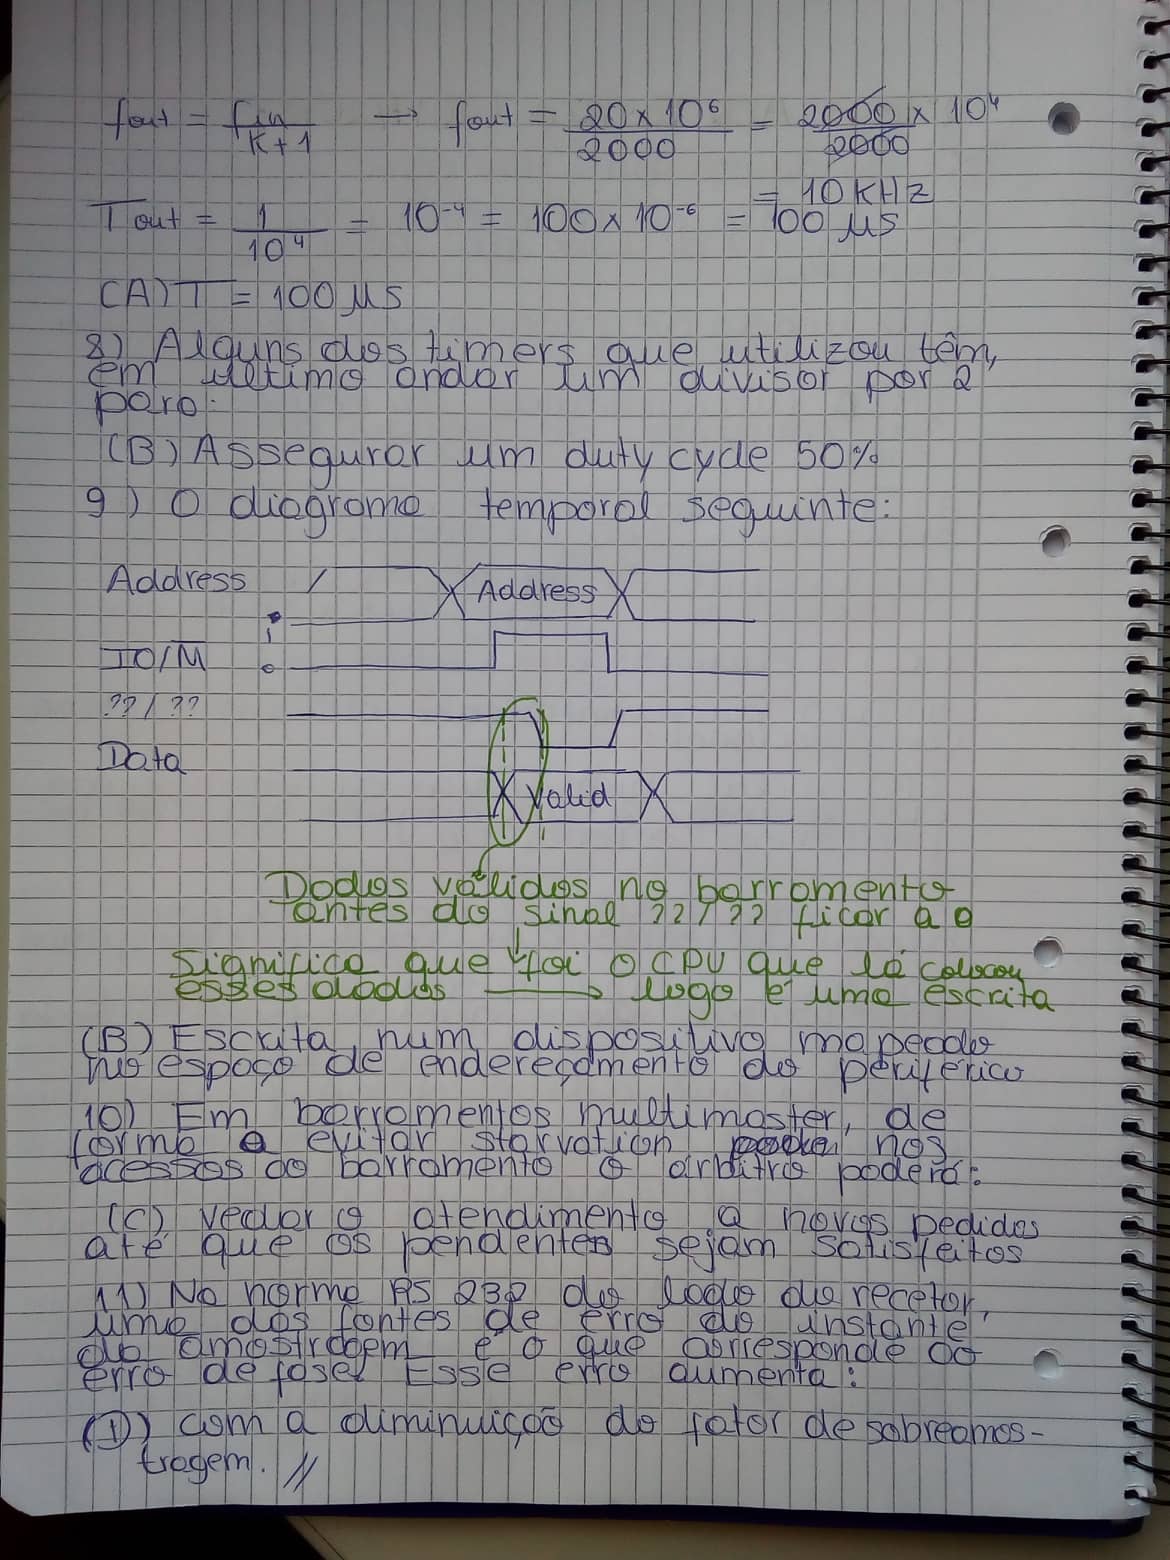 fout = fin / K+1 → fout = 20 x 10⁶ / 2000 = 2000 x 10⁴ / 2000
= 10 KHZ
Tout = 1 / 10⁴ = 10⁻⁴ = 100 x 10⁻⁶ = 100 µs
(A) T = 100 µs
8) Alguns dos timers que utilizou têm,
em último andar um divisor por 2
para:
(B) Assegurar um duty cycle 50%
9) O diagrama temporal seguinte:
Address Address
1
IO/M̅ 0
?? / ??
Data Valid
Dados válidos no barramento
antes do sinal ?? / ?? ficar a 0
↓
Significa que foi o CPU que lá colocou
esses dados → logo é uma escrita
(B) Escrita num dispositivo mapeado
no espaço de endereçamento do periférico
10) Em barramentos multimaster, de
forma a evitar starvation nos
acessos ao barramento o árbitro poderá:
(C) vedar o atendimento a novos pedidos
até que os pendentes sejam satisfeitos
11) Na norma RS 232 do lado do recetor,
uma das fontes de erro do instante
da amostragem é o que corresponde ao
erro de fase. Esse erro aumenta:
(D) com a diminuição do fator de sobreamos-
tragem. //